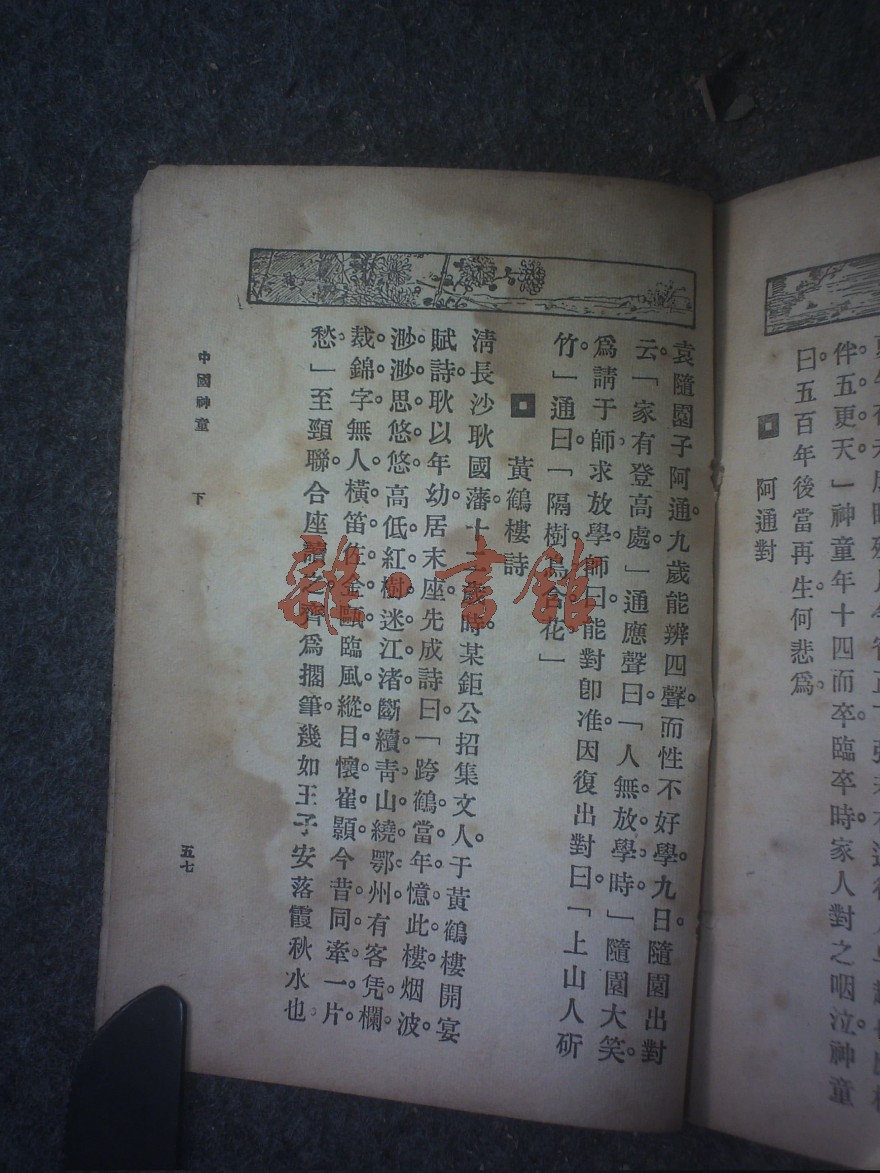 伴五更天」神童年十四而卒。臨卒時家人對之咽泣。神童
曰。五百年後當再生。何悲爲。
阿通對
袁隨園子阿通。九歲能辨四聲。而性不好學。九日隨園出對
云「家有登高處。」通應聲曰「人無放學時」隨園大笑。
爲請于師求放學。師曰。能對卽准。因復出對曰。「上山人斫
竹」通曰「隔樹鳥含花」
黃鶴樓詩
清長沙耿國藩十二歲時某鉅公招集文人。于黃鶴樓開宴
賦詩。耿以年幼居末座。先成詩曰「跨鶴當年憶此樓。烟波
渺渺思悠悠。高低紅樹迷江渚。斷續靑山繞鄂州。有客凭欄
裁錦字。無人橫笛佐金甌。臨風縱目懷崔顥。今昔同牽一片
愁。」至頸聯合座讀之。齊爲擱筆。幾如王子安落霞秋水也。
中國神童 下 五七
雜·書館